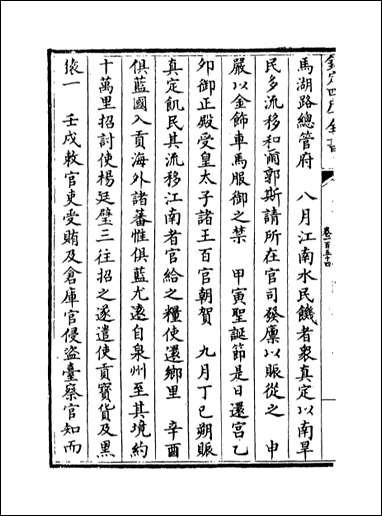 欽定四庫全書
卷一百五十四
馬湖路總管府　八月江南水民饑者衆真定以南旱
民多流移和爾郭斯請所在官司發廩以賑從之　申
嚴以金飾車馬服御之禁　甲寅聖誕節是日還宫乙
夘御正殿受皇太子諸王百官朝賀　九月丁巳朔賑
真定飢民其流移江南者官給之糧使還鄉里　辛酉
俱藍國入貢海外諸蕃惟俱藍尤逺自泉州至其境約
十萬里招討使楊廷璧三往招之遂遣使貢寳貨及黑
猿一　壬戌敕官吏受賄及倉庫官侵盗臺察官知而